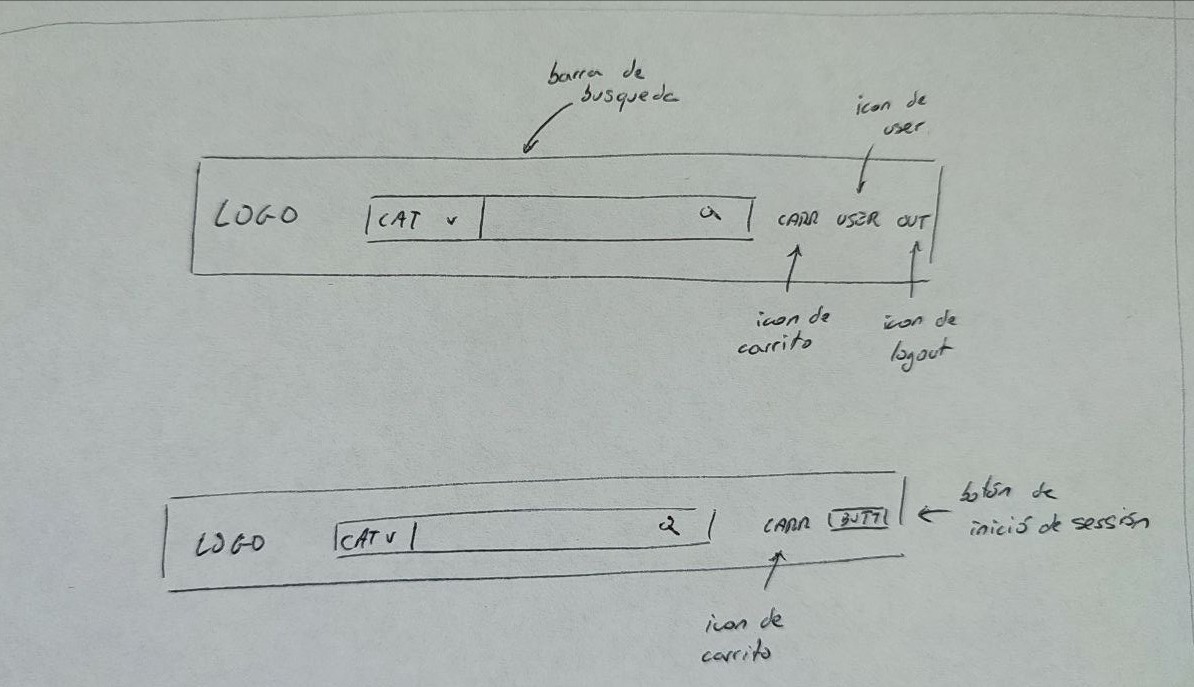 barra de
busqueda
icon de
user
LOGO
CAT v
CARR USER OUT
icon de
carrito
icon de
logout
LOGO
CAT v
CARR BUTT
botón de
inició de sessión
icon de
carrito